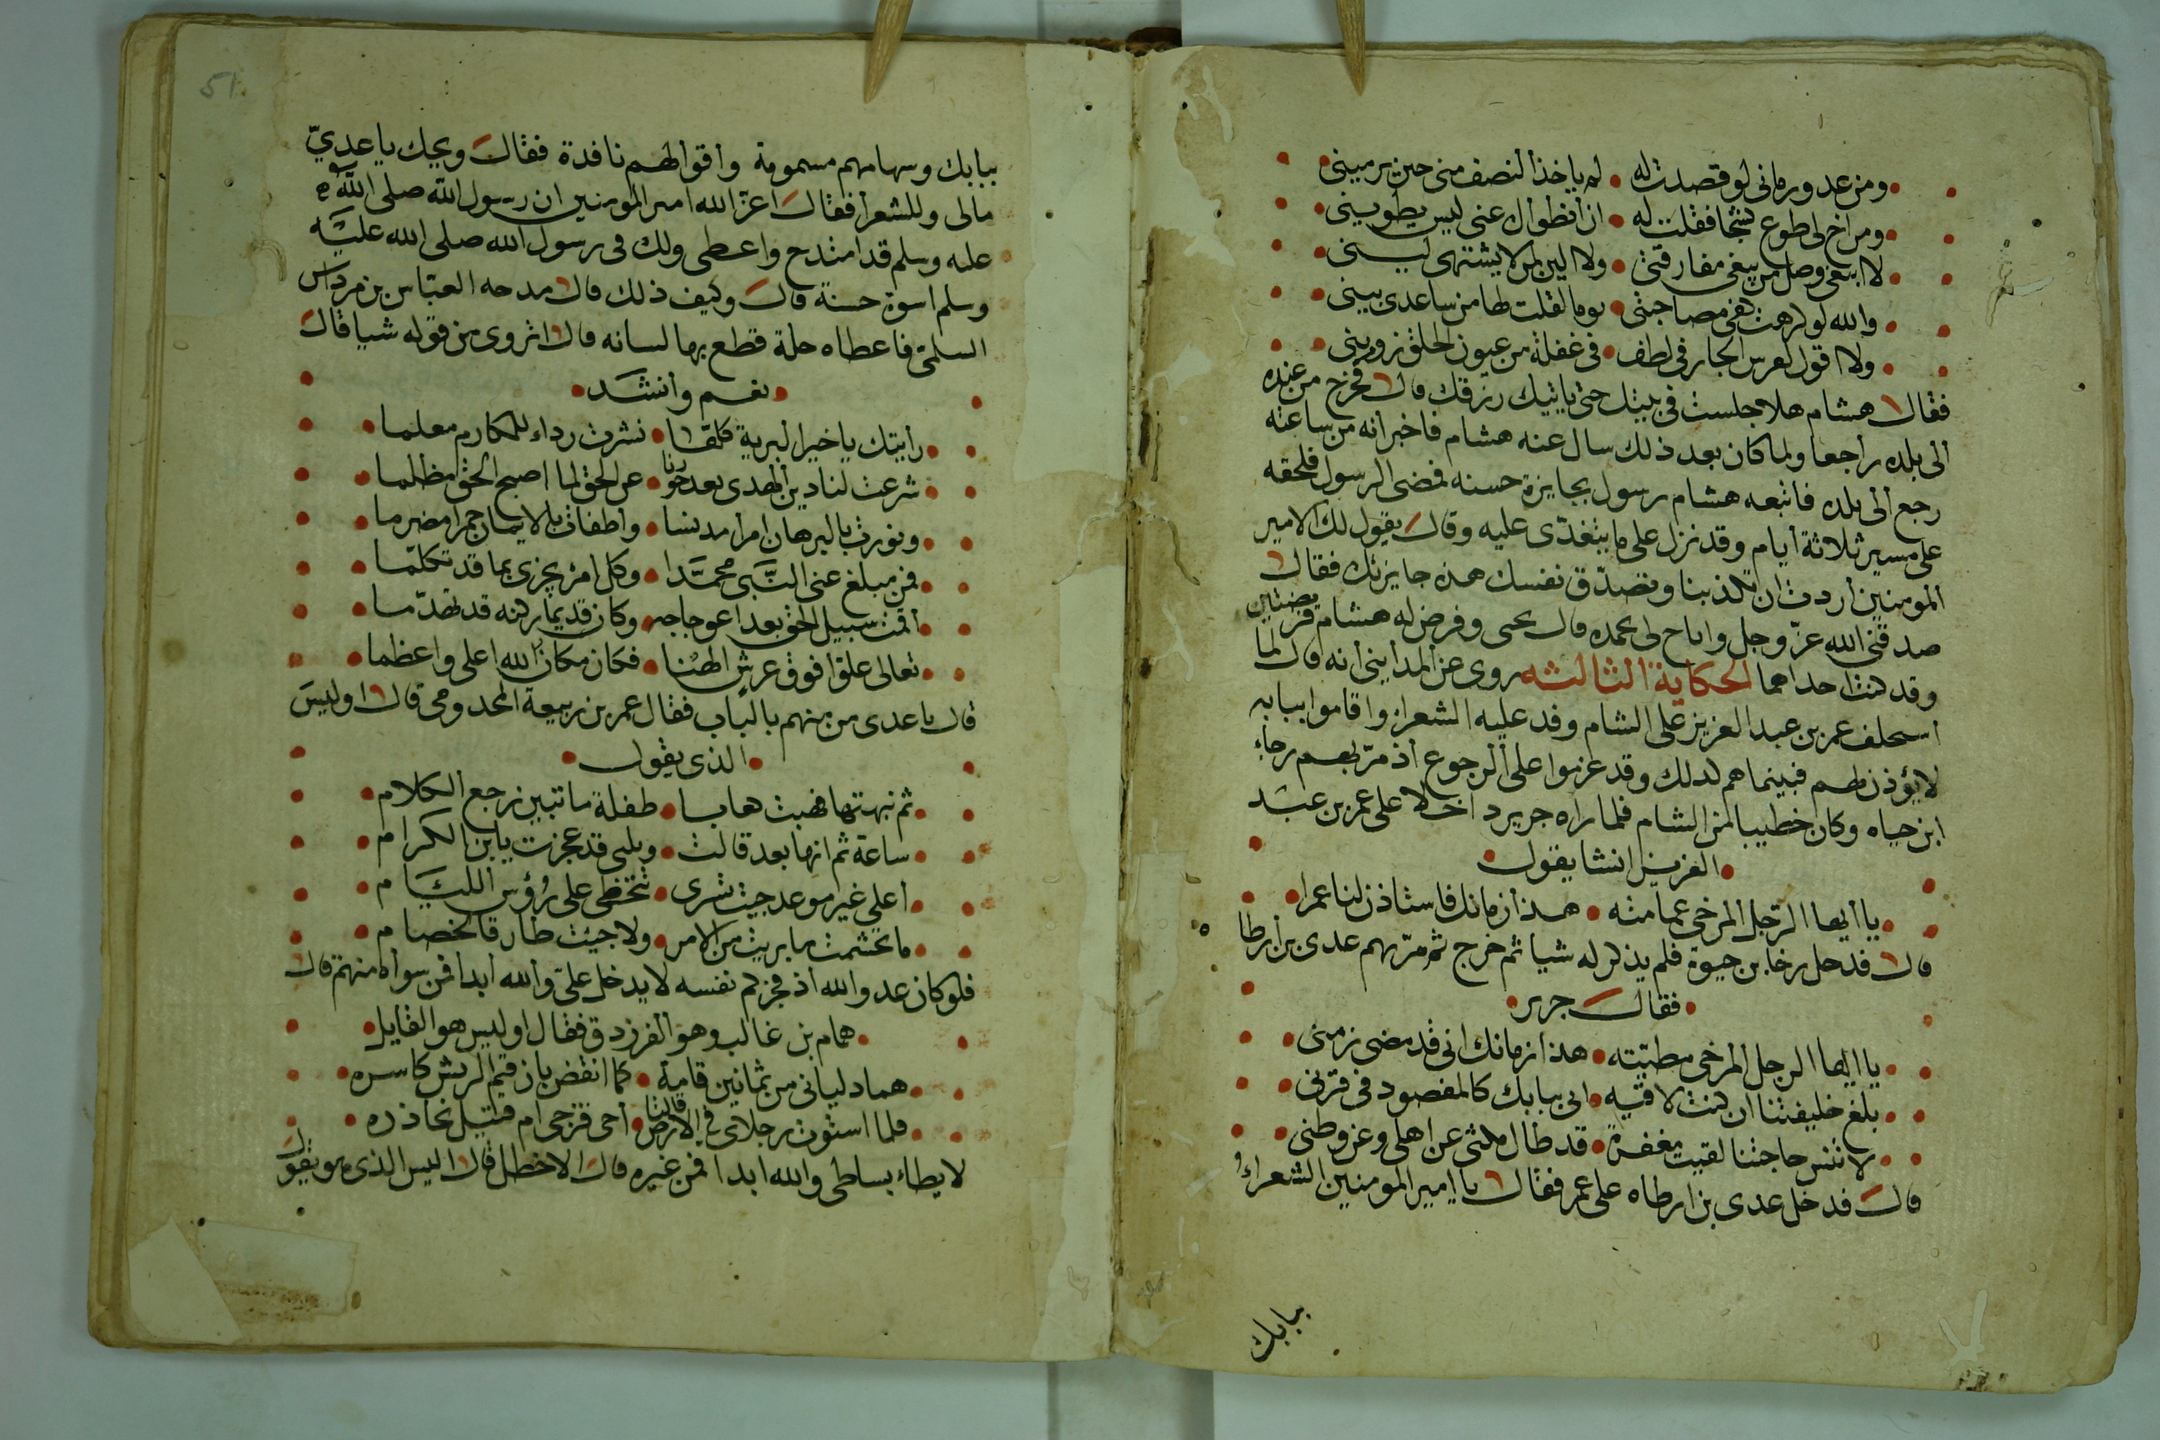 ومن عدو رماني لو قصدت له • لم ياخذ النصف مني حين يرميني
ومن اخ لي طوع كشحا فقلت له • ان انطوال عني ليس يطويني
لا ابتغي وصل من يبغي مفارقتي • ولا الين لمن لا يشتهي ليني
والله لو كرهت كفي مصاحبتي • يوما لقلت لها من ساعدي بيني
ولا اقول لعرس الجار في لطف • في غفلة من عيون الخلق زوريني
فقال هشام هلا جلست في بيتك حتى ياتيك رزقك قال فخرج من عنده
الى بلده راجعا ولما كان بعد ذلك سال عنه هشام فاخبر انه من ساعته
رجع الى بلده فاتبعه هشام رسول بجايزة حسنه فمضى الرسول فلحقه
على مسير ثلاثة ايام وقد نزل على ما يتغدى عليه وقال يقول لك الامير
المومنين اردت ان تكذبنا وتصدق نفسك هذه جايزتك فقال
صدقني الله عز وجل واباح لي بحمده قال يحيى وفرض له هشام فريضتين
وقد كنت احداهما الحكاية الثالثه روى عن المدايني انه قال لما
استخلف عمر بن عبد العزيز على الشام وفد عليه الشعرا واقاموا ببابه
لا يؤذن لهم فبينما هم لذلك وقد عزموا على الرجوع اذ مر بهم رجاء
ابن حياه وكان خطيبا من الشام فلما راه جرير داخلا على عمر بن عبد
• العزيز انشا يقول •
يا ايها الرجل المرخي عمامته • هذا زمانك فاستاذن لنا عمرا
قال فدخل رجا بن حيوة فلم يذكر له شيا ثم خرج ثم مر بهم عدي بن ارطا
• فقال جرير •
يا ايها الرجل المرخي مطيته • هذا زمانك اني قد مضى زمني
بلغ خليفتنا ان كنت لاقيه • اني ببابك كالمصفود في قرني
لا تنس حاجتنا لقيت مغفرة • قد طال مكثي عن اهلي وعن وطني
قال فدخل عدي بن ارطاه على عمر فقال يا امير المومنين الشعراء
ببابك
51
ببابك وسهامهم مسمومة واقوالهم نافدة فقال ويحك يا عدي
مالى وللشعرا فقال اعز الله امير المومنين ان رسول الله صلى الله
عليه وسلم قد امتدح واعطى ولك في رسول الله صلى الله عليه
وسلم اسوة حسنة قال وكيف ذلك قال مدحه العباس بن مرداس
السلمي فاعطاه حلة قطع بها لسانه قال اتروي من قوله شيا قال
• نعم وانشد •
رايتك يا خير البرية كلها • نشرت رداء للمكارم معلما
شرعت لنا دين الهدى بعد جورنا • عن الحق لما اصبح الحق مظلما
ونورت بالبرهان امرا مدنسا • واطفات بالايمان جمرا مضرما
فمن مبلغ عني النبي محمدا • وكل امرئ يجزى بما قد تكلما
اقمت سبيل الحق بعد اعوجاجه • وكان قديما ركنه قد تهدما
تعالى علوا فوق عرش الهنا • فكان مكان الله اعلى واعظما
قال يا عدي من منهم بالباب فقال عمر بن ربيعة المخدومي قال اوليس
• الذي يقول •
ثم نبهتها فهبت هابا • طفلة ما تبين رجع الكلام
ساعة ثم انها بعد قالت • ويلتي قد عجزت يا بن الكرام
اعلى غير موعد جيت تسرى • تتخطى على رؤس الليام
ما تجشمت ما بريت من الامر • ولا جيت طارقا لخصام
فلو كان عدو الله اذ فجر كتم نفسه لا يدخل علي والله ابدا فمن سواه منهم قال
• همام بن غالب وهو الفرزدق فقال اوليس هو القايل •
هما دلياني من ثمانين قامة • كما انقض باز قتم الريش كاسره
فلما استوت رجلاي في الارض قالتا • احي فرجى ام قتيل نحاذره
لا يطاء بساطي والله ابدا فمن غيره قال الاخطل قال اليس الذي هو يقول